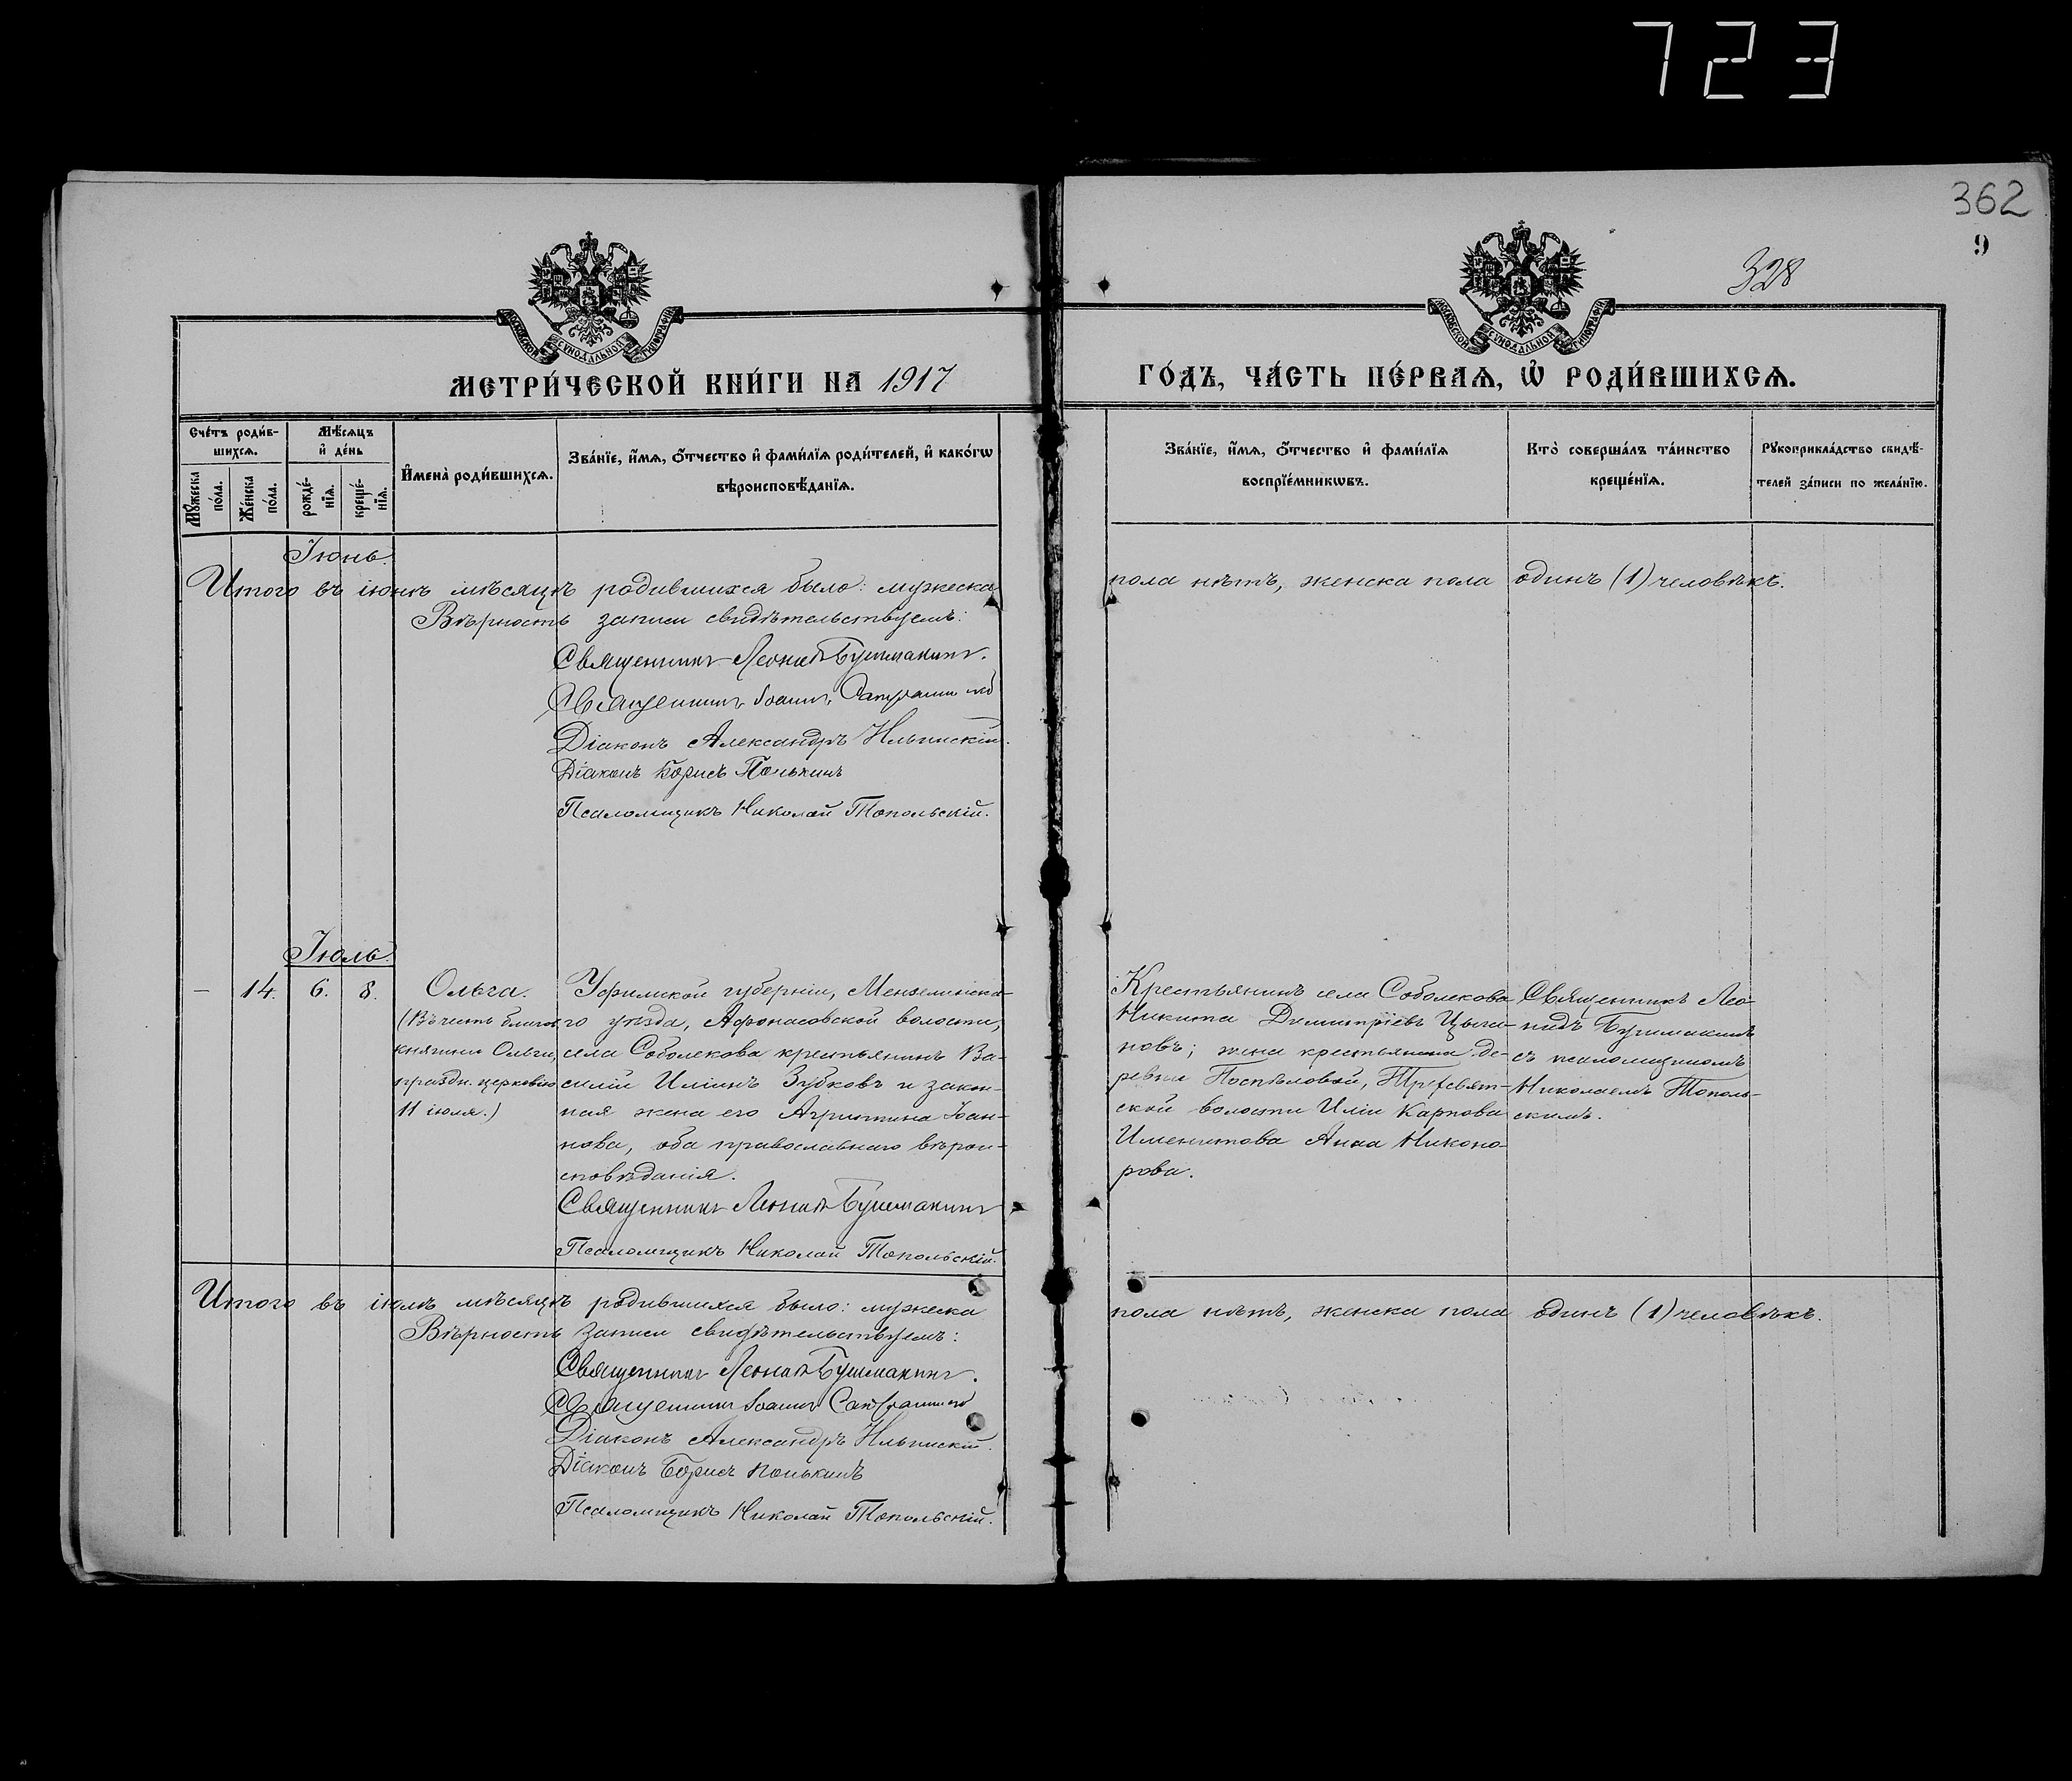 723
362
9
328
МОСКОВСКОЙ СѴНОДАЛЬНОЙ ТИПОГРАФІИ
МОСКОВСКОЙ СѴНОДАЛЬНОЙ ТИПОГРАФІИ
МЕТРИ́ЧЕСКОЙ КНИ́ГИ НА 1917
ГО́ДЪ, ЧА́СТЬ ПЕ́РВАѦ, Ѽ РОДИ́ВШИХСѦ.
Сче́тъ роди́в-
шихсѧ.
Мѣ́сѧцъ
и҆ де́нь
Мꙋ́жеска
по́ла.
Же́нска
по́ла.
рожде́-
нїѧ.
креще́-
нїѧ.
И҆мена̀ роди́вшихсѧ.
Зва́нїе, и҆́мѧ, ѻ҆́тчество и҆ фами́лїѧ роди́телей, и҆ како́гѡ
вѣроисповѣ́данїѧ.
Зва́нїе, и҆́мѧ, ѻ҆́тчество и҆ фами́лїѧ
воспрїе́мникѡвъ.
Кто̀ соверша́лъ та́инство
креще́нїѧ.
Рꙋкоприкла́дство свидѣ́-
телей за́писи по жела́нїю.
Іюнь.
Итого въ іюнѣ мѣсяцѣ родившихся было: мужеска
пола нѣтъ, женска пола одинъ (1) человѣкъ.
Вѣрность записи свидѣтельствуемъ:
Священникъ Леонидъ Бушмакинъ.
Священникъ Іоаннъ
Діаконъ Александръ Ильинскій.
Діаконъ Борисъ Понькинъ
Псаломщикъ Николай Топольскій.
Іюль.
– 14. 6. 8. Ольга.
(Въ честь благов.
княгини Ольги,
праздн. церковію
11 іюля.)
Уфимской губерніи, Мензелинска-
го уѣзда, Афонасовской волости,
села Соболекова крестьянинъ Ва-
силій Иліинъ Зубковъ и закон-
ная жена его Агриппина Іоан-
нова, оба православнаго вѣрои-
сповѣданія.
Священникъ Леонидъ Бушмакинъ
Псаломщикъ Николай Топольскій.
Крестьянинъ села Соболекова
Никита Димитріевъ Цыга-
новъ; жена крестьянина де-
ревни Поспѣловой, Трехсвят-
ской волости Иліи Карпова
Именитова Анна Никоно-
рова.
Священникъ Лео-
нидъ Бушмакинъ
съ псаломщикомъ
Николаемъ Тополь-
скимъ.
Итого въ іюлѣ мѣсяцѣ родившихся было: мужеска
пола нѣтъ, женска пола одинъ (1) человѣкъ.
Вѣрность записи свидѣтельствуемъ:
Священникъ Леонидъ Бушмакинъ.
Священникъ Іоаннъ
Діаконъ Александръ Ильинскій.
Діаконъ Борисъ Понькинъ
Псаломщикъ Николай Топольскій.